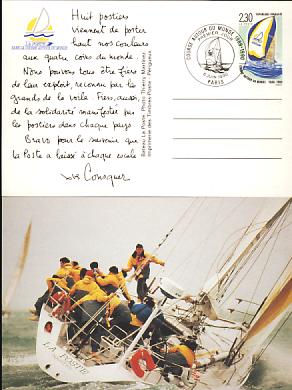 Huit postiers
viennent de porter
haut nos couleurs
aux quatre coins du monde.
Nous pouvons tous être fiers
de leur exploit, reconnu par les
grands de la voile. Fiers, aussi,
de la solidarité manifestée par
les postiers dans chaque pays.
Bravo pour le souvenir que
La Poste a laissé à chaque escale
Yves Cousquer
Bateau La Poste. Photo Thierry Martinez.
Imprimerie des Timbres-Poste - Périgueux
COURSE AUTOUR DU MONDE 1989-1990
PREMIER JOUR
PARIS
2,30
LA POSTE